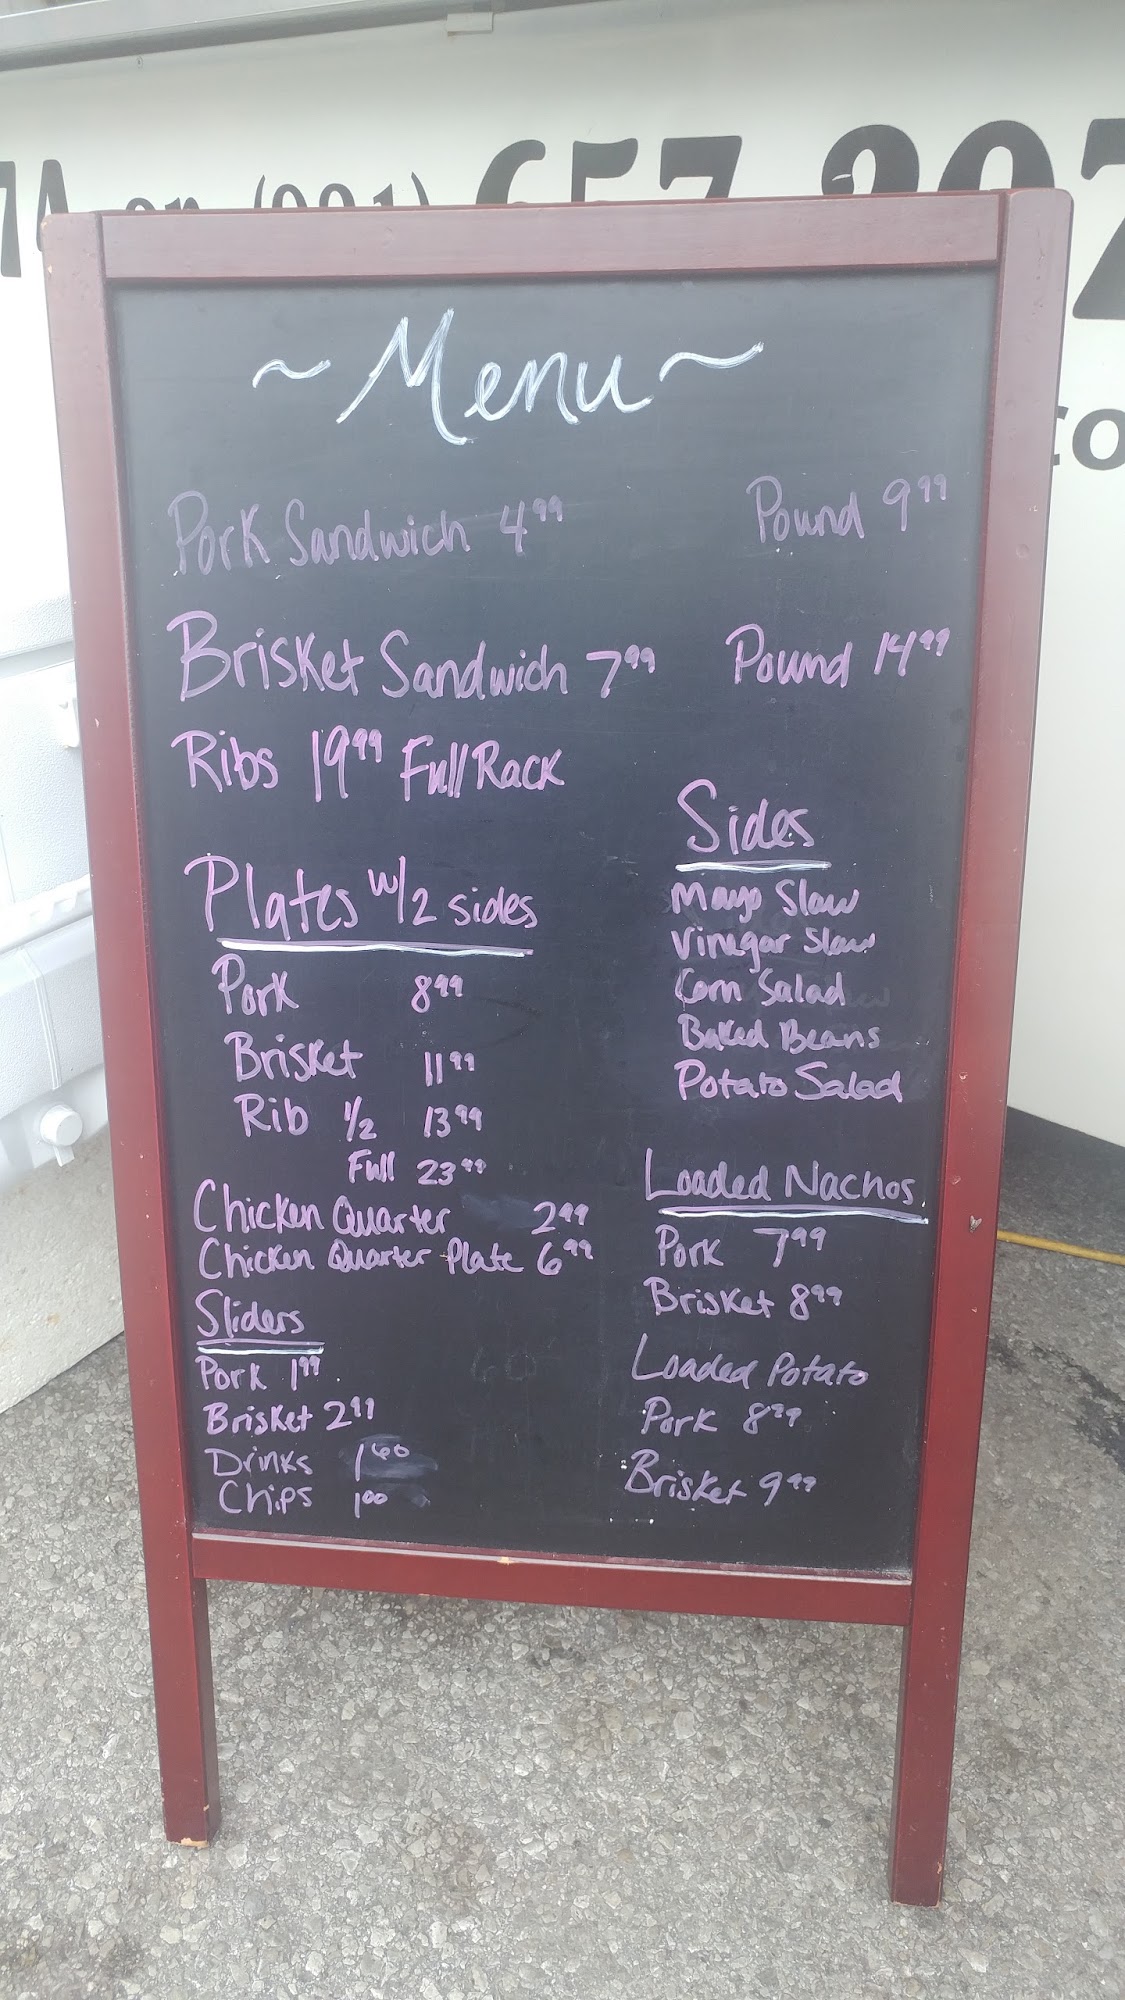 7A or (901) 657-207
co
~Menu~
Pork Sandwich 4.99 Pound 9.99
Brisket Sandwich 7.99 Pound 14.99
Ribs 19.99 Full Rack
Plates w/2 sides
Pork 8.99
Brisket 11.99
Rib 1/2 13.99
Full 23.99
Chicken Quarter 2.99
Chicken Quarter Plate 6.99
Sliders
Pork 1.99
Brisket 2.99
Drinks
Chips 1.00
Sides
Mayo Slaw
Vinegar Slaw
Corn Salad
Baked Beans
Potato Salad
Loaded Nachos
Pork 7.99
Brisket 8.99
Loaded Potato
Pork 8.99
Brisket 9.99